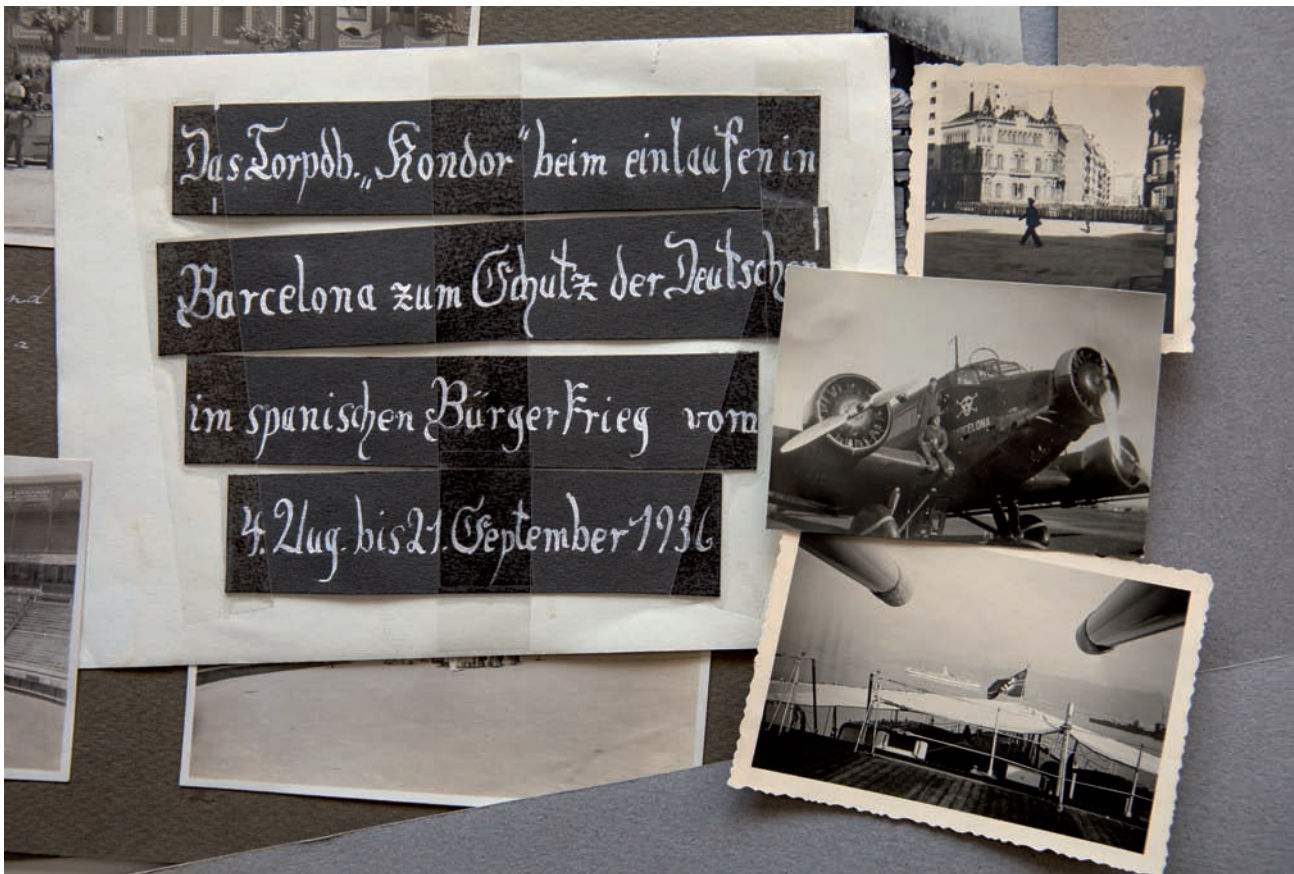 Das Torpdb. „Kondor“ beim einlaufen in
Barcelona zum Schutz der Deutschen
im spanischen Bürgerkrieg vom
4. Aug. bis 21. September 1936
CELONA